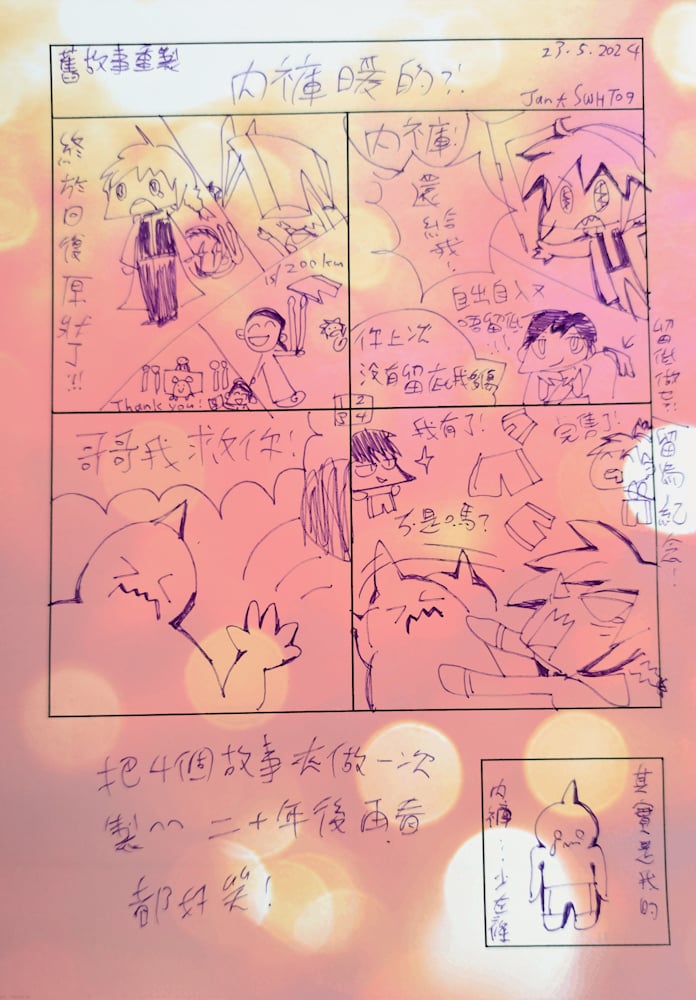 舊故事重製
23.5.2024
內褲暖的?!
Jan★SWHT09
終於回復原狀了!!!
1s/200km
Thank you!
內褲!
還給我!
自出自入又
唔留低
!!!
你上次
沒有留底我
留低做乜!
留為紀念!
1 2
3 4
哥哥我救你!
我有了!
完售了!
不是嗎?
把4個故事去做一次
製^^ 二十年後再看
都好笑!
其實是我的
內褲…